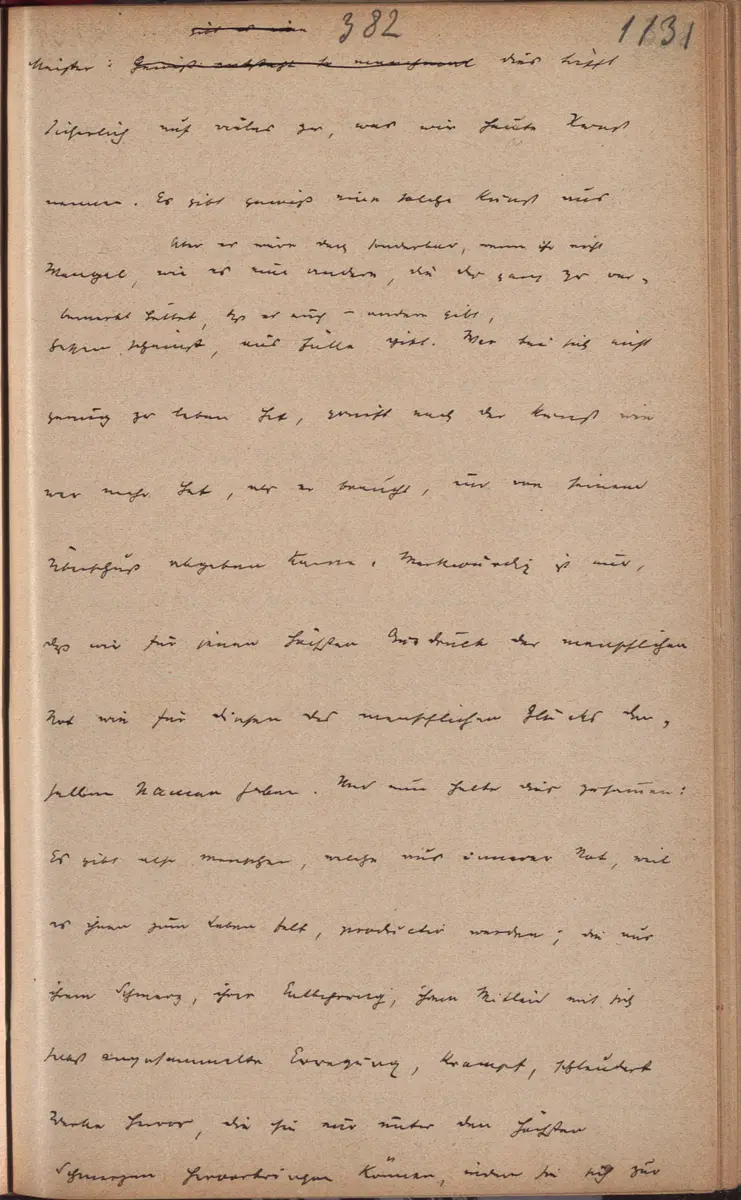 382
1131
Meister: dies trifft
sicherlich auf vieles zu, was wir heute Kunst
nennen. Es gibt gewiß eine solche Kunst aus
Aber es wäre doch sonderbar, wenn ihr nicht
Mangel, wie es eine andere, die du ganz zu ver-
bemerkt hättet, daß es auch eine andere gibt,
gessen scheinst, aus Fülle gibt. Wer bei sich nicht
genug zu leben hat, greift nach der Kunst wie
wer mehr hat, als er braucht, nur von seinem
Überschuß abgeben kann. Merkwürdig ist nur,
daß wir für jenen höchsten Ausdruck der menschlichen
Not wie für diesen des menschlichen Glücks den-
selben Namen haben. Und nun halte dies zusammen:
Es gibt also Menschen, welche aus innerer Not, weil
es ihnen zum Leben felt, productiv werden; die aus
ihrem Schmerz, ihrer Entbehrung, ihrem Mitleid mit sich
selbst angesammelte Erregung, Krampf, schleudert
Werke hervor, die sie nur unter den höchsten
Schmerzen hervorbringen können, indem sie sich zur